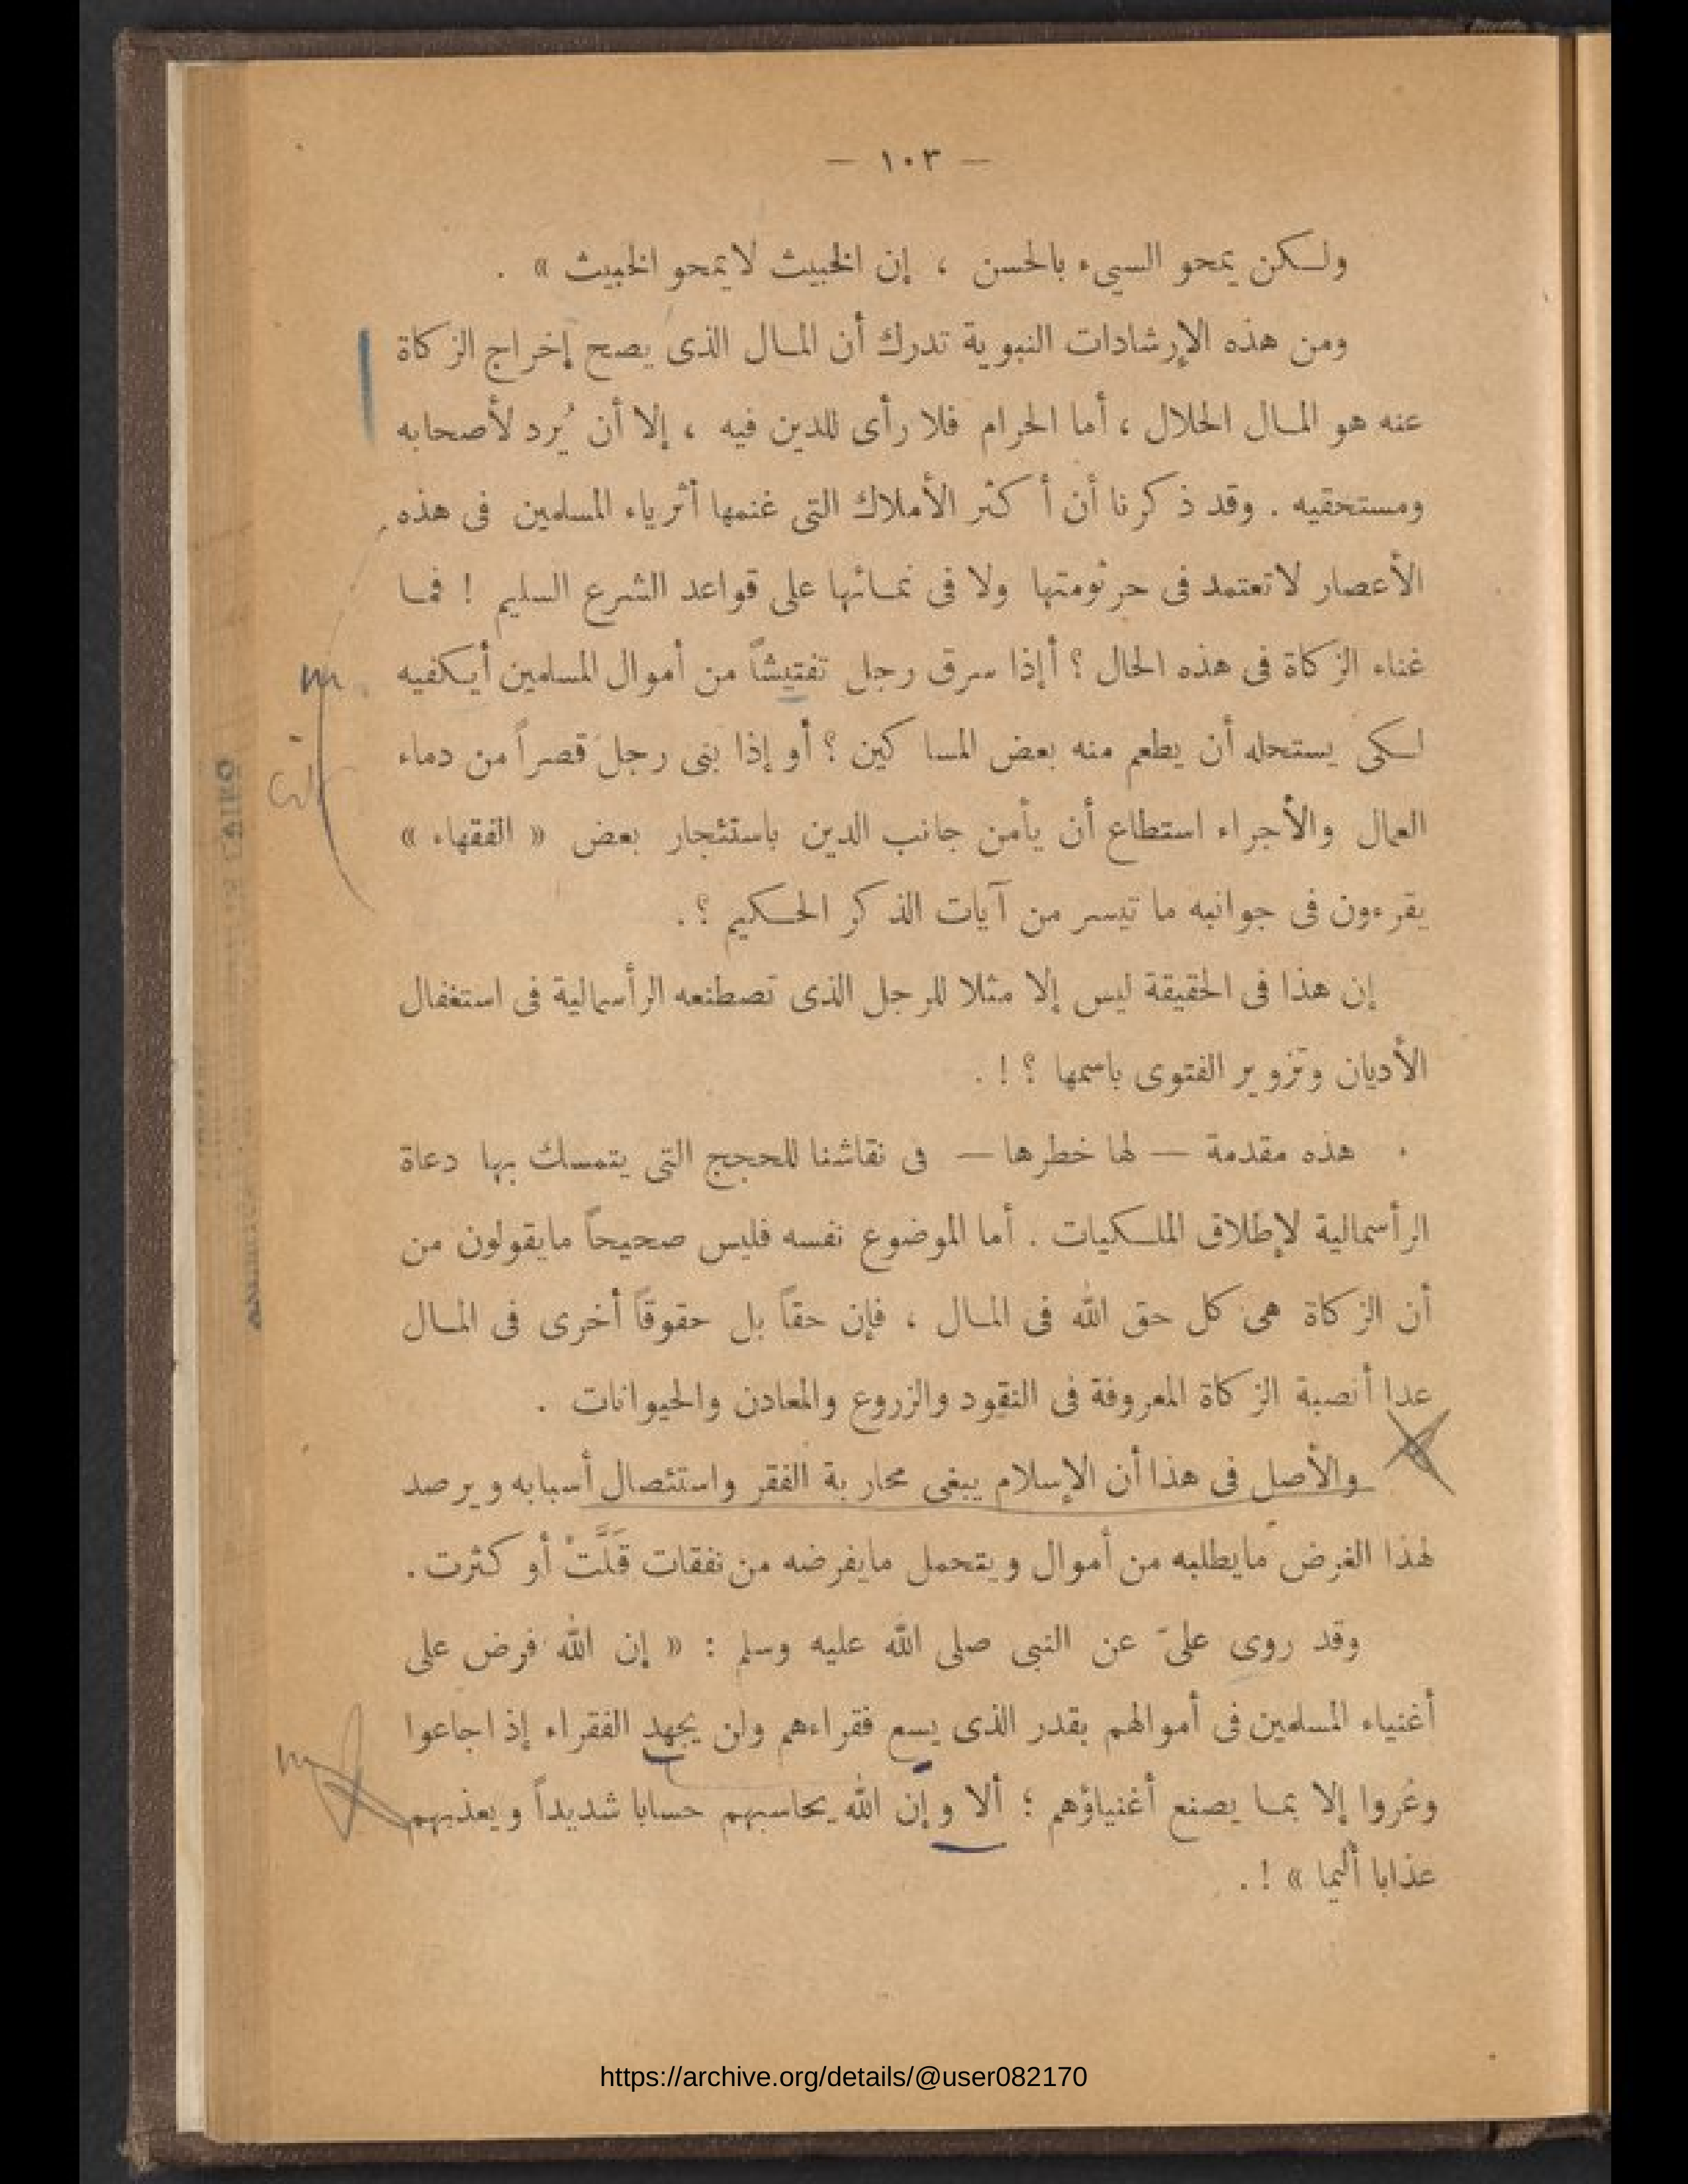 — ١٠٣ —
ولكن يمحو السيىء بالحسن ، إن الخبيث لا يمحو الخبيث » .
ومن هذه الإرشادات النبوية تدرك أن المال الذى يصح إخراج الزكاة
عنه هو المال الحلال ، أما الحرام فلا رأى للدين فيه ، إلا أن يُرد لأصحابه
ومستحقيه . وقد ذكرنا أن أكثر الأملاك التى غنمها أثرياء المسلمين فى هذه
الأعصار لا تعتمد فى جرثومتها ولا فى نمائها على قواعد الشرع السليم ! فما
غناء الزكاة فى هذه الحال ؟ أإذا سرق رجل تفتيشاً من أموال المسلمين أيكفيه
لكى يستحله أن يطعم منه بعض المساكين ؟ أو إذا بنى رجل قصراً من دماء
العمال والأجراء استطاع أن يأمن جانب الدين باستئجار بعض « الفقهاء »
يقرءون فى جوانبه ما تيسر من آيات الذكر الحكيم ؟ .
إن هذا فى الحقيقة ليس إلا مثلا للرجل الذى تصطنعه الرأسمالية فى استغفال
الأديان وتزوير الفتوى باسمها ؟ ! .
هذه مقدمة — لها خطرها — فى نقاشنا للحجج التى يتمسك بها دعاة
الرأسمالية لإطلاق الملكيات . أما الموضوع نفسه فليس صحيحاً مايقولون من
أن الزكاة هى كل حق الله فى المال ، فإن حقاً بل حقوقاً أخرى فى المال
عدا أنصبة الزكاة المعروفة فى النقود والزروع والمعادن والحيوانات .
والأصل فى هذا أن الإسلام يبغى محاربة الفقر واستئصال أسبابه ويرصد
لهذا الغرض مايطلبه من أموال ويتحمل مايفرضه من نفقات قَلَّتْ أو كثرت .
وقد روى علىّ عن النبى صلى الله عليه وسلم : « إن الله فرض على
أغنياء المسلمين فى أموالهم بقدر الذى يسع فقراءهم ولن يجهد الفقراء إذ اجاعوا
وعُروا إلا بما يصنع أغنياؤهم ؛ ألا وإن الله يحاسبهم حسابا شديداً ويعذبهم
عذابا أليما » ! .
https://archive.org/details/@user082170